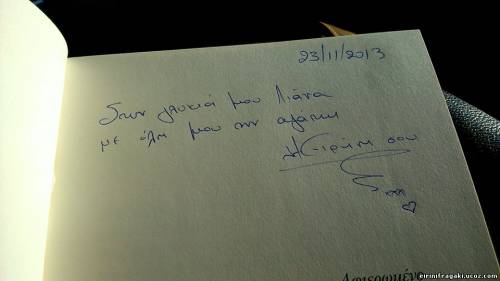 23/11/2013
Στην γλυκιά μου Λιάνα
με όλη μου την αγάπη
Η Ειρήνη σου
Αφιερωμένο
eirinifragaki.ucoz.com